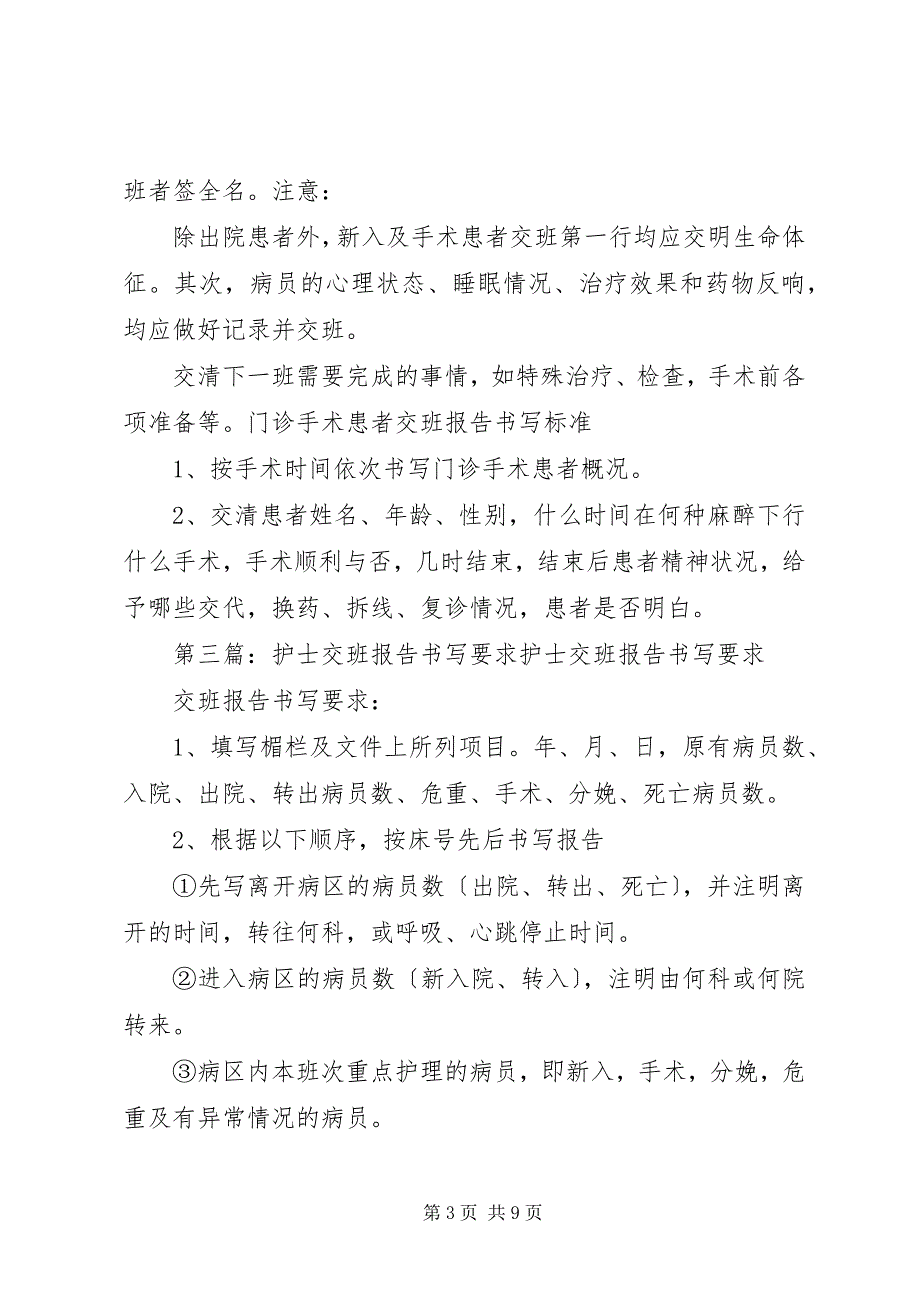 班者签全名。注意：
除出院患者外，新入及手术患者交班第一行均应交明生命体
征。其次，病员的心理状态、睡眠情况、治疗效果和药物反响，
均应做好记录并交班。
交清下一班需要完成的事情，如特殊治疗、检查，手术前各
项准备等。门诊手术患者交班报告书写标准
1、按手术时间依次书写门诊手术患者概况。
2、交清患者姓名、年龄、性别，什么时间在何种麻醉下行
什么手术，手术顺利与否，几时结束，结束后患者精神状况，给
予哪些交代，换药、拆线、复诊情况，患者是否明白。
第三篇：护士交班报告书写要求护士交班报告书写要求
交班报告书写要求：
1、填写楣栏及文件上所列项目。年、月、日，原有病员数、
入院、出院、转出病员数、危重、手术、分娩、死亡病员数。
2、根据以下顺序，按床号先后书写报告
①先写离开病区的病员数〔出院、转出、死亡〕，并注明离
开的时间，转往何科，或呼吸、心跳停止时间。
②进入病区的病员数〔新入院、转入〕，注明由何科或何院
转来。
③病区内本班次重点护理的病员，即新入，手术，分娩，危
重及有异常情况的病员。
第 3 页 共 9 页